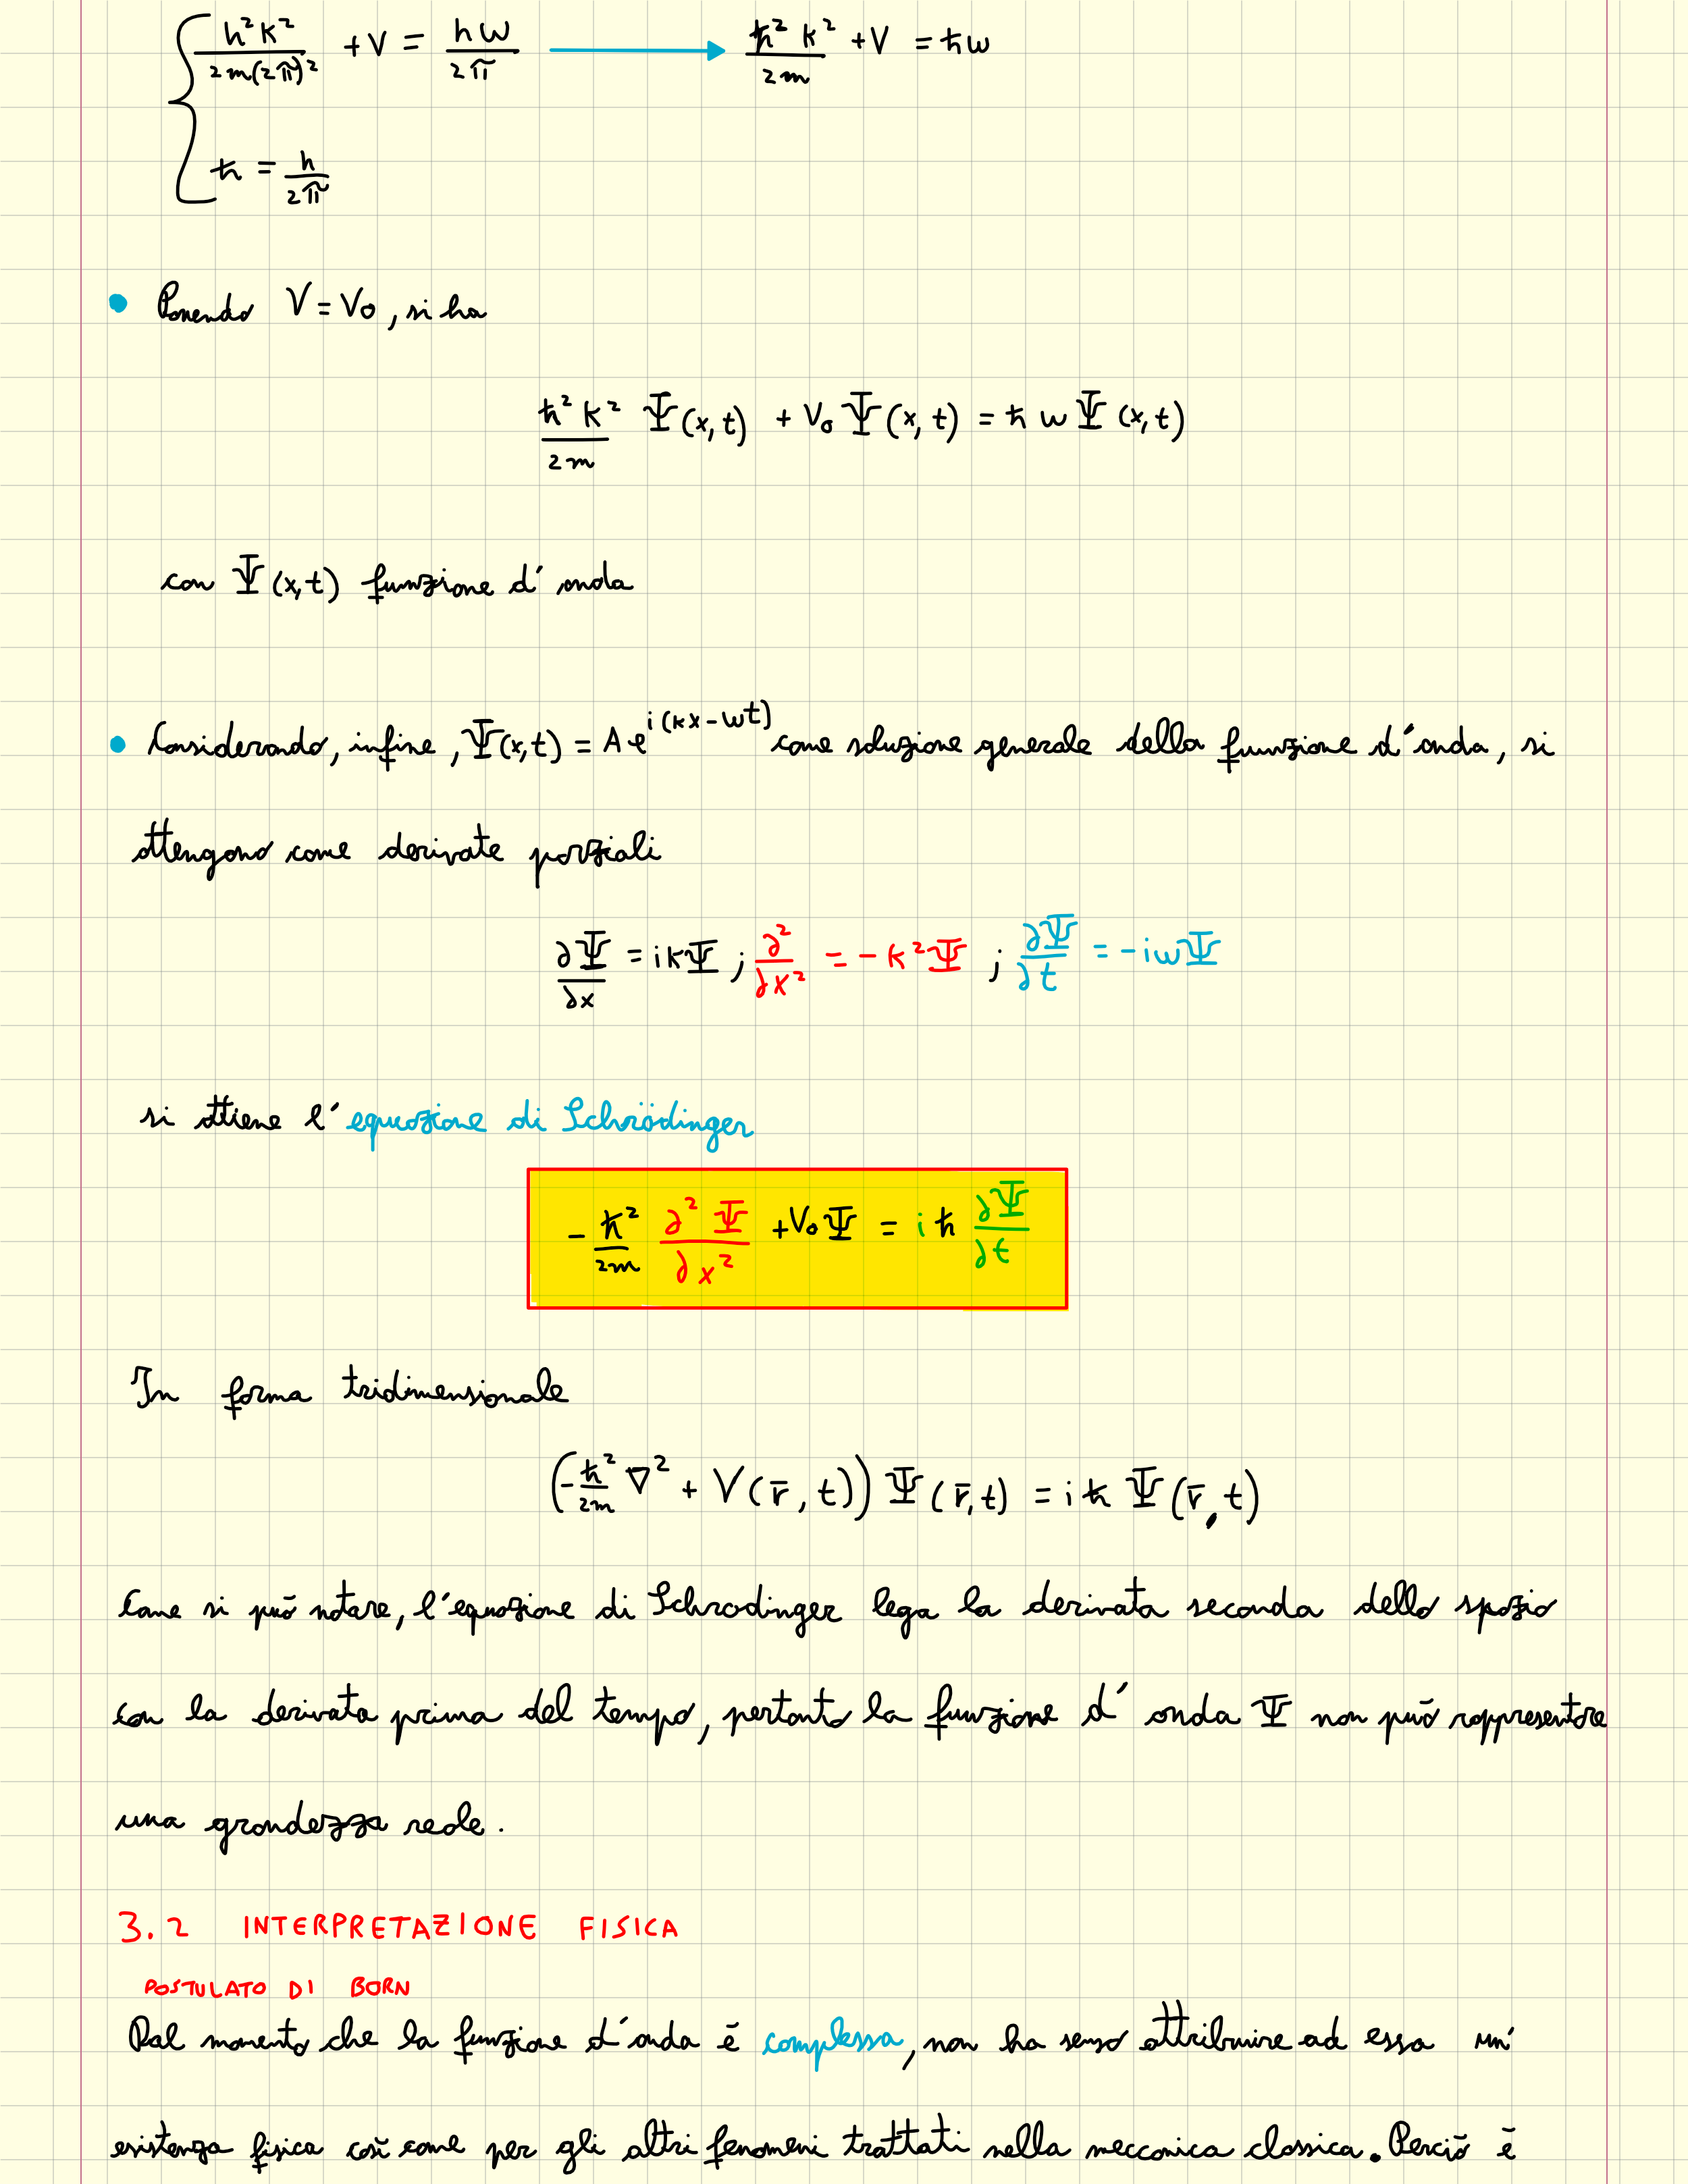 { ħ²k²/2m(2π)² + V = hω/2π → ħ²k²/2m + V = ħω
ħ = h/2π
• Ponendo V = V₀, si ha
ħ²k²/2m Ψ(x,t) + V₀Ψ(x,t) = ħωΨ(x,t)
con Ψ(x,t) funzione d'onda
• Considerando, infine, Ψ(x,t) = Ae^{i(kx-ωt)} come soluzione generale della funzione d'onda, si
ottengono come derivate parziali
∂Ψ/∂x = ikΨ ; ∂²/∂x² = -k²Ψ ; ∂Ψ/∂t = -iωΨ
si ottiene l'equazione di Schrödinger
-ħ²/2m ∂²Ψ/∂x² + V₀Ψ = iħ ∂Ψ/∂t
In forma tridimensionale
(-ħ²/2m ∇² + V(r̄,t)) Ψ(r̄,t) = iħ Ψ(r̄,t)
Come si può notare, l'equazione di Schrodinger lega la derivata seconda dello spazio
con la derivata prima del tempo, pertanto la funzione d'onda Ψ non può rappresentare
una grandezza reale.
3.2 INTERPRETAZIONE FISICA
POSTULATO DI BORN
Dal momento che la funzione d'onda è complessa, non ha senso attribuire ad essa un'
esistenza fisica così come per gli altri fenomeni trattati nella meccanica classica. Perciò è